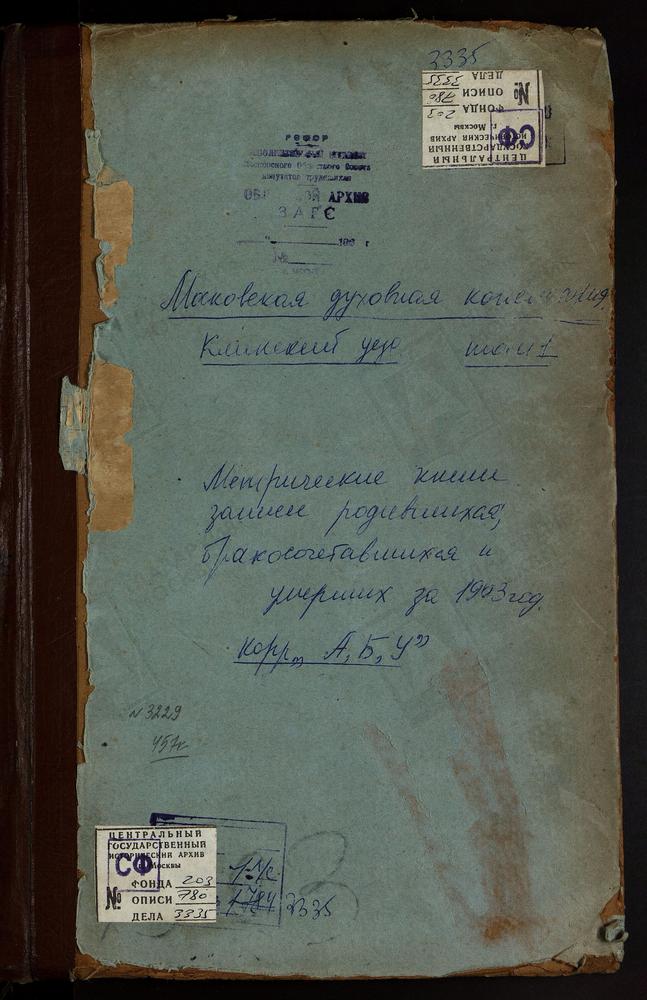 3335
ЦЕНТРАЛЬНЫЙ
ГОСУДАРСТВЕННЫЙ
ИСТОРИЧЕСКИЙ АРХИВ
г. Москвы
СФ
ФОНДА 203
№ ОПИСИ 780
ДЕЛА 3335
РСФСР
Московского Областного Совета
депутатов трудящихся
АРХИВ
ЗАГС
№
Московская духовная консистория
Клинский уезд том 1
Метрические книги
записи родившихся,
бракосочетавшихся и
умерших за 1903 год.
корр „А, Б, У"
N 3229
457л
ЦЕНТРАЛЬНЫЙ
ГОСУДАРСТВЕННЫЙ
ИСТОРИЧЕСКИЙ АРХИВ
г. Москвы
СФ
ФОНДА 203
№ ОПИСИ 780
ДЕЛА 3335
3335